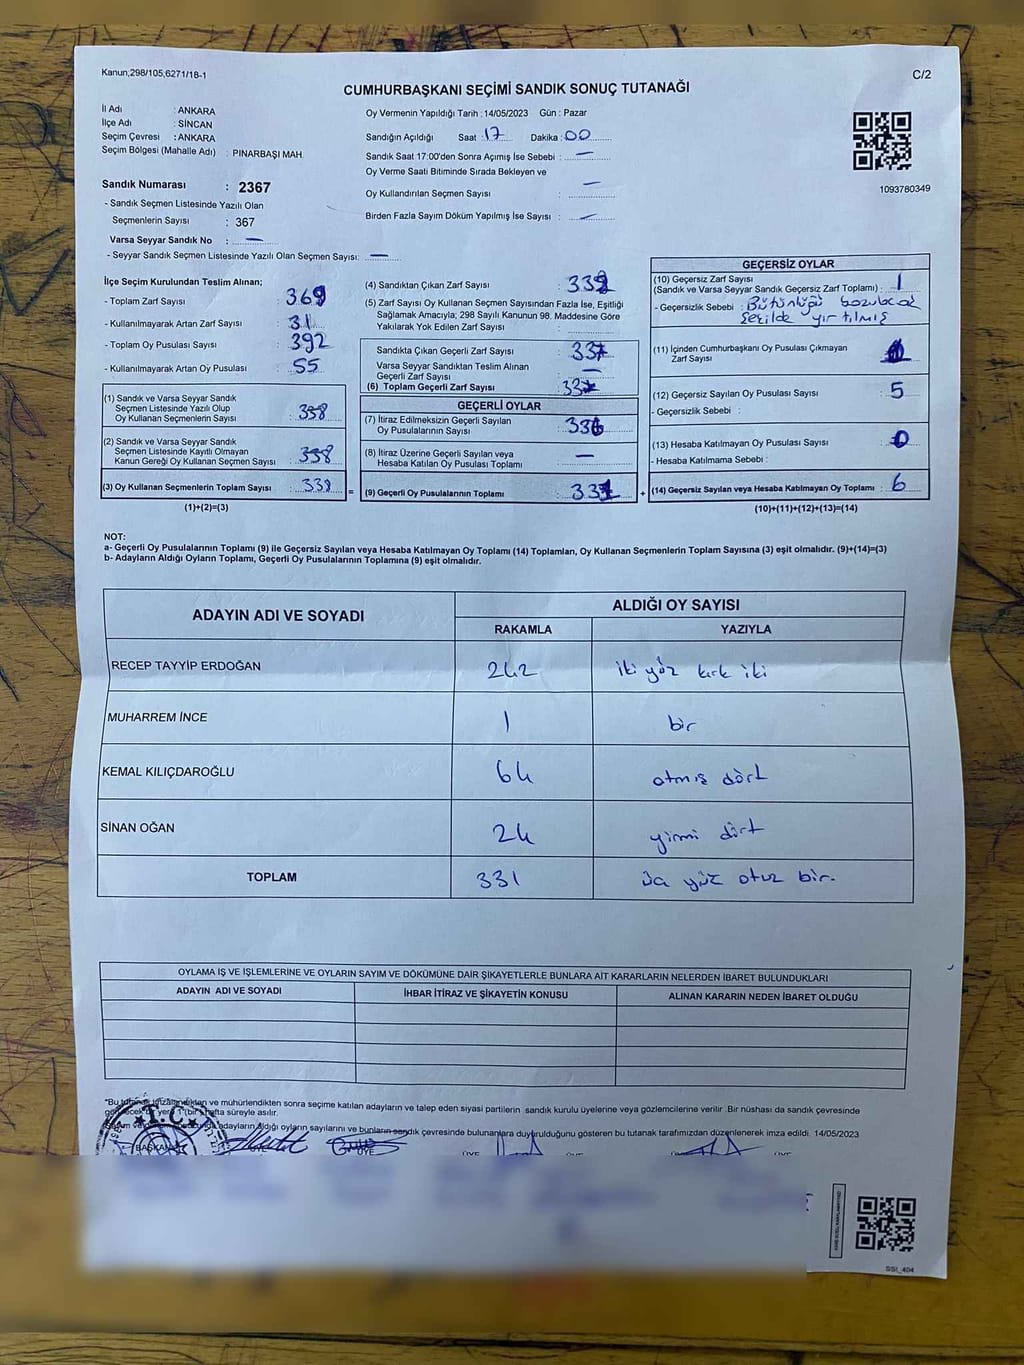 Kanun;298/105;6271/18-1
C/2
CUMHURBAŞKANI SEÇİMİ SANDIK SONUÇ TUTANAĞI
İl Adı : ANKARA
İlçe Adı : SİNCAN
Seçim Çevresi : ANKARA
Seçim Bölgesi (Mahalle Adı) : PINARBAŞI MAH.
Oy Vermenin Yapıldığı Tarih : 14/05/2023 Gün : Pazar
Sandığın Açıldığı Saat 17 Dakika : 00
Sandık Saat 17:00'den Sonra Açımış İse Sebebi : —
Oy Verme Saati Bitiminde Sırada Bekleyen ve
Oy Kullandırılan Seçmen Sayısı : —
Birden Fazla Sayım Döküm Yapılmış İse Sayısı : —
1093780349
Sandık Numarası : 2367
- Sandık Seçmen Listesinde Yazılı Olan
Seçmenlerin Sayısı : 367
Varsa Seyyar Sandık No : —
- Seyyar Sandık Seçmen Listesinde Yazılı Olan Seçmen Sayısı: —
İlçe Seçim Kurulundan Teslim Alınan;
- Toplam Zarf Sayısı : 369
- Kullanılmayarak Artan Zarf Sayısı : 31
- Toplam Oy Pusulası Sayısı : 392
- Kullanılmayarak Artan Oy Pusulası : 55
(1) Sandık ve Varsa Seyyar Sandık
Seçmen Listesinde Yazılı Olup
Oy Kullanan Seçmenlerin Sayısı : 338
(2) Sandık ve Varsa Seyyar Sandık
Seçmen Listesinde Kayıtlı Olmayan
Kanun Gereği Oy Kullanan Seçmen Sayısı : 338
(3) Oy Kullanan Seçmenlerin Toplam Sayısı : 338
(1)+(2)=(3)
(4) Sandıktan Çıkan Zarf Sayısı :
(5) Zarf Sayısı Oy Kullanan Seçmen Sayısından Fazla İse, Eşitliği
Sağlamak Amacıyla; 298 Sayılı Kanunun 98. Maddesine Göre
Yakılarak Yok Edilen Zarf Sayısı :
Sandıkta Çıkan Geçerli Zarf Sayısı :
Varsa Seyyar Sandıktan Teslim Alınan
Geçerli Zarf Sayısı : —
(6) Toplam Geçerli Zarf Sayısı :
GEÇERLİ OYLAR
(7) İtiraz Edilmeksizin Geçerli Sayılan
Oy Pusulalarının Sayısı :
(8) İtiraz Üzerine Geçerli Sayılan veya
Hesaba Katılan Oy Pusulası Toplamı : —
= (9) Geçerli Oy Pusulalarının Toplamı : 331 +
GEÇERSİZ OYLAR
(10) Geçersiz Zarf Sayısı
(Sandık ve Varsa Seyyar Sandık Geçersiz Zarf Toplamı) : 1
- Geçersizlik Sebebi : Bütünlüğü bozulacak
şekilde yırtılmış
(11) İçinden Cumhurbaşkanı Oy Pusulası Çıkmayan
Zarf Sayısı :
(12) Geçersiz Sayılan Oy Pusulası Sayısı : 5
- Geçersizlik Sebebi :
(13) Hesaba Katılmayan Oy Pusulası Sayısı : 0
- Hesaba Katılmama Sebebi :
(14) Geçersiz Sayılan veya Hesaba Katılmayan Oy Toplamı : 6
(10)+(11)+(12)+(13)=(14)
NOT:
a- Geçerli Oy Pusulalarının Toplamı (9) ile Geçersiz Sayılan veya Hesaba Katılmayan Oy Toplamı (14) Toplamları, Oy Kullanan Seçmenlerin Toplam Sayısına (3) eşit olmalıdır. (9)+(14)=(3)
b- Adayların Aldığı Oyların Toplamı, Geçerli Oy Pusulalarının Toplamına (9) eşit olmalıdır.
ADAYIN ADI VE SOYADI
ALDIĞI OY SAYISI
RAKAMLA YAZIYLA
RECEP TAYYİP ERDOĞAN 242 iki yüz kırk iki
MUHARREM İNCE 1 bir
KEMAL KILIÇDAROĞLU 64 atmış dört
SİNAN OĞAN 24 yirmi dört
TOPLAM 331 üç yüz otuz bir.
OYLAMA İŞ VE İŞLEMLERİNE VE OYLARIN SAYIM VE DÖKÜMÜNE DAİR ŞİKAYETLERLE BUNLARA AİT KARARLARIN NELERDEN İBARET BULUNDUKLARI
ADAYIN ADI VE SOYADI İHBAR İTİRAZ VE ŞİKAYETİN KONUSU ALINAN KARARIN NEDEN İBARET OLDUĞU
"Bu tutanak imzalandıktan ve mühürlendikten sonra seçime katılan adayların ve talep eden siyasi partilerin sandık kurulu üyelerine veya gözlemcilerine verilir. Bir nüshası da sandık çevresinde
yere 1 (bir) hafta süreyle asılır.
adayların aldığı oyların sayılarını ve bunların sandık çevresinde bulunanlara duyurulduğunu gösteren bu tutanak tarafımızdan düzenlenerek imza edildi. 14/05/2023
T.C.
BAŞKAN ÜYE ÜYE ÜYE ÜYE ÜYE
SSI_404